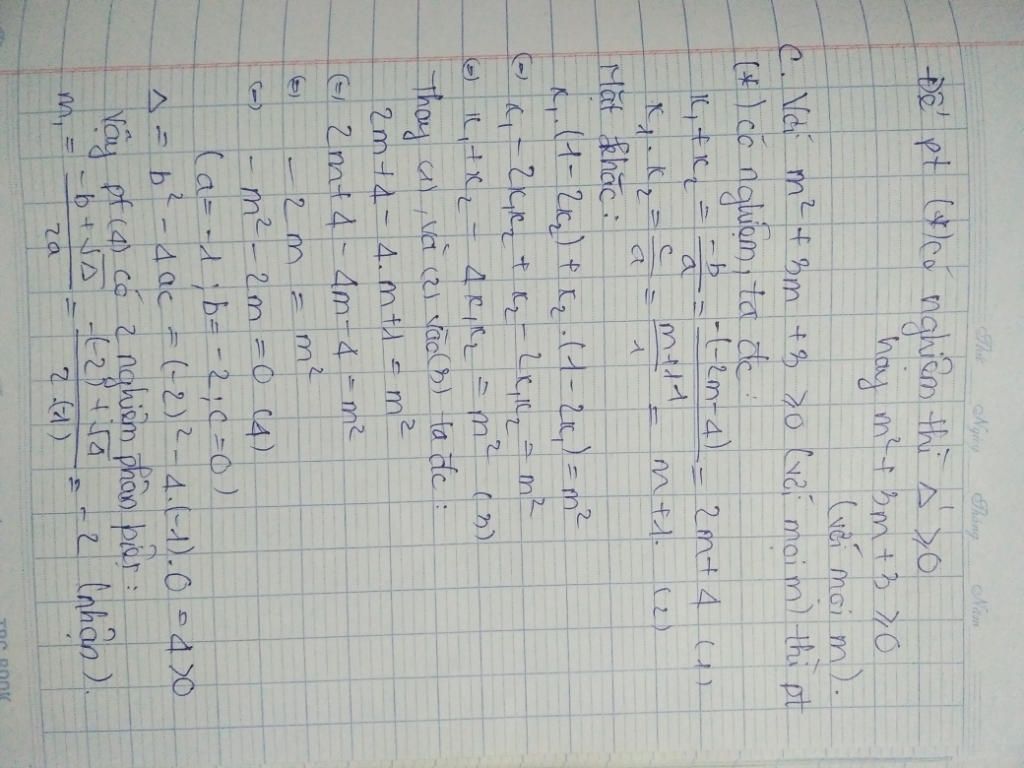 Thứ Ngày Tháng Năm
Để pt (*) có nghiệm thì Δ' ≥ 0
hay m² + 3m + 3 ≥ 0
(với mọi m).
C. Với m² + 3m + 3 ≥ 0 (với mọi m) thì pt
(*) có nghiệm, ta đc:
x₁ + x₂ = -b/a = -(-2m-4)/1 = 2m + 4 (1)
x₁ . x₂ = c/a = m+1/1 = m + 1. (2)
Mặt khác:
x₁.(1 - 2x₂) + x₂.(1 - 2x₁) = m²
(=) x₁ - 2x₁x₂ + x₂ - 2x₁x₂ = m²
(=) x₁ + x₂ - 4x₁x₂ = m² (3)
Thay (1), và (2) vào (3) ta đc:
2m + 4 - 4.m + 1 = m²
(=) 2m + 4 - 4m - 4 = m²
(=) - 2m = m²
(=) - m² - 2m = 0 (4)
(a = -1; b = -2; c = 0)
Δ = b² - 4ac = (-2)² - 4.(-1).0 = 4 > 0
Vậy pt (4) có 2 nghiệm phân biệt:
m₁ = -b + √Δ/2a = -(-2) + √4/2.(-1) = -2 (nhận).